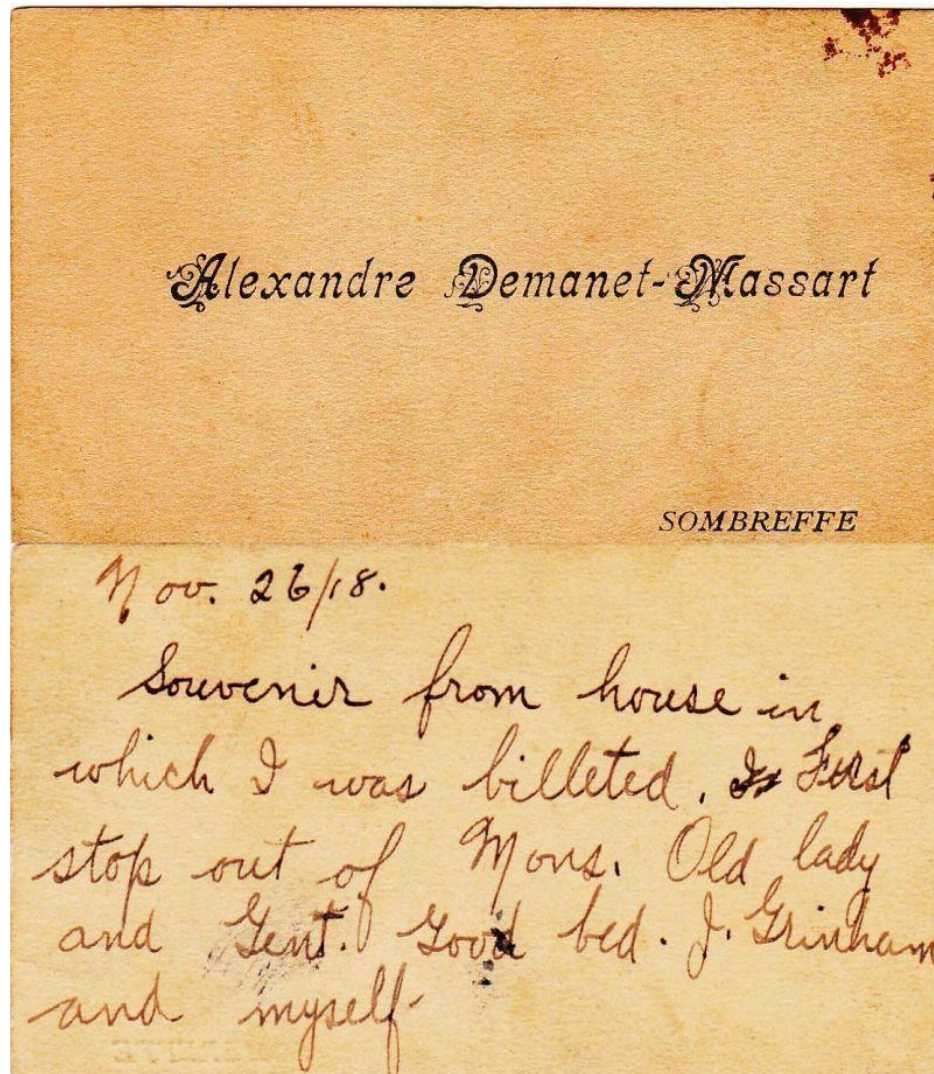 Alexandre Demanet-Massart
SOMBREFFE
Nov. 26/18.
Souvenir from house in
which I was billeted. First
stop out of Mons. Old lady
and Gent. Good bed. J. Grinham
and myself